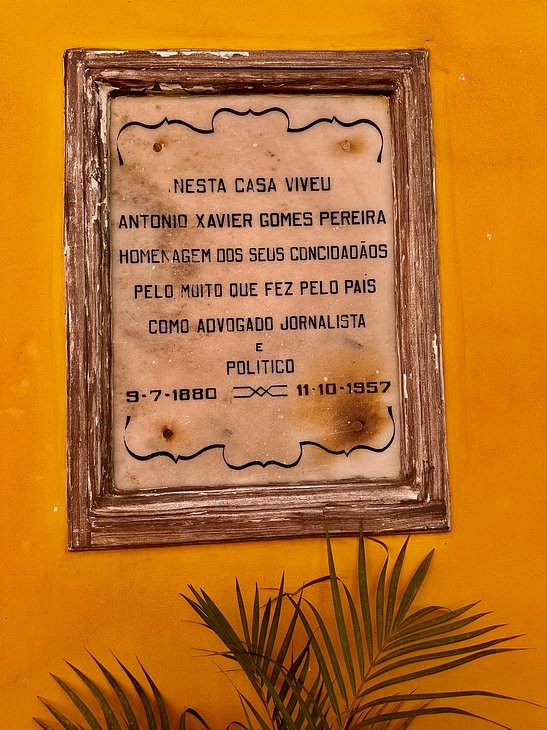 NESTA CASA VIVEU
ANTONIO XAVIER GOMES PEREIRA
HOMENAGEM DOS SEUS CONCIDADÃOS
PELO MUITO QUE FEZ PELO PAÍS
COMO ADVOGADO JORNALISTA
E
POLITICO
9-7-1880 11-10-1957